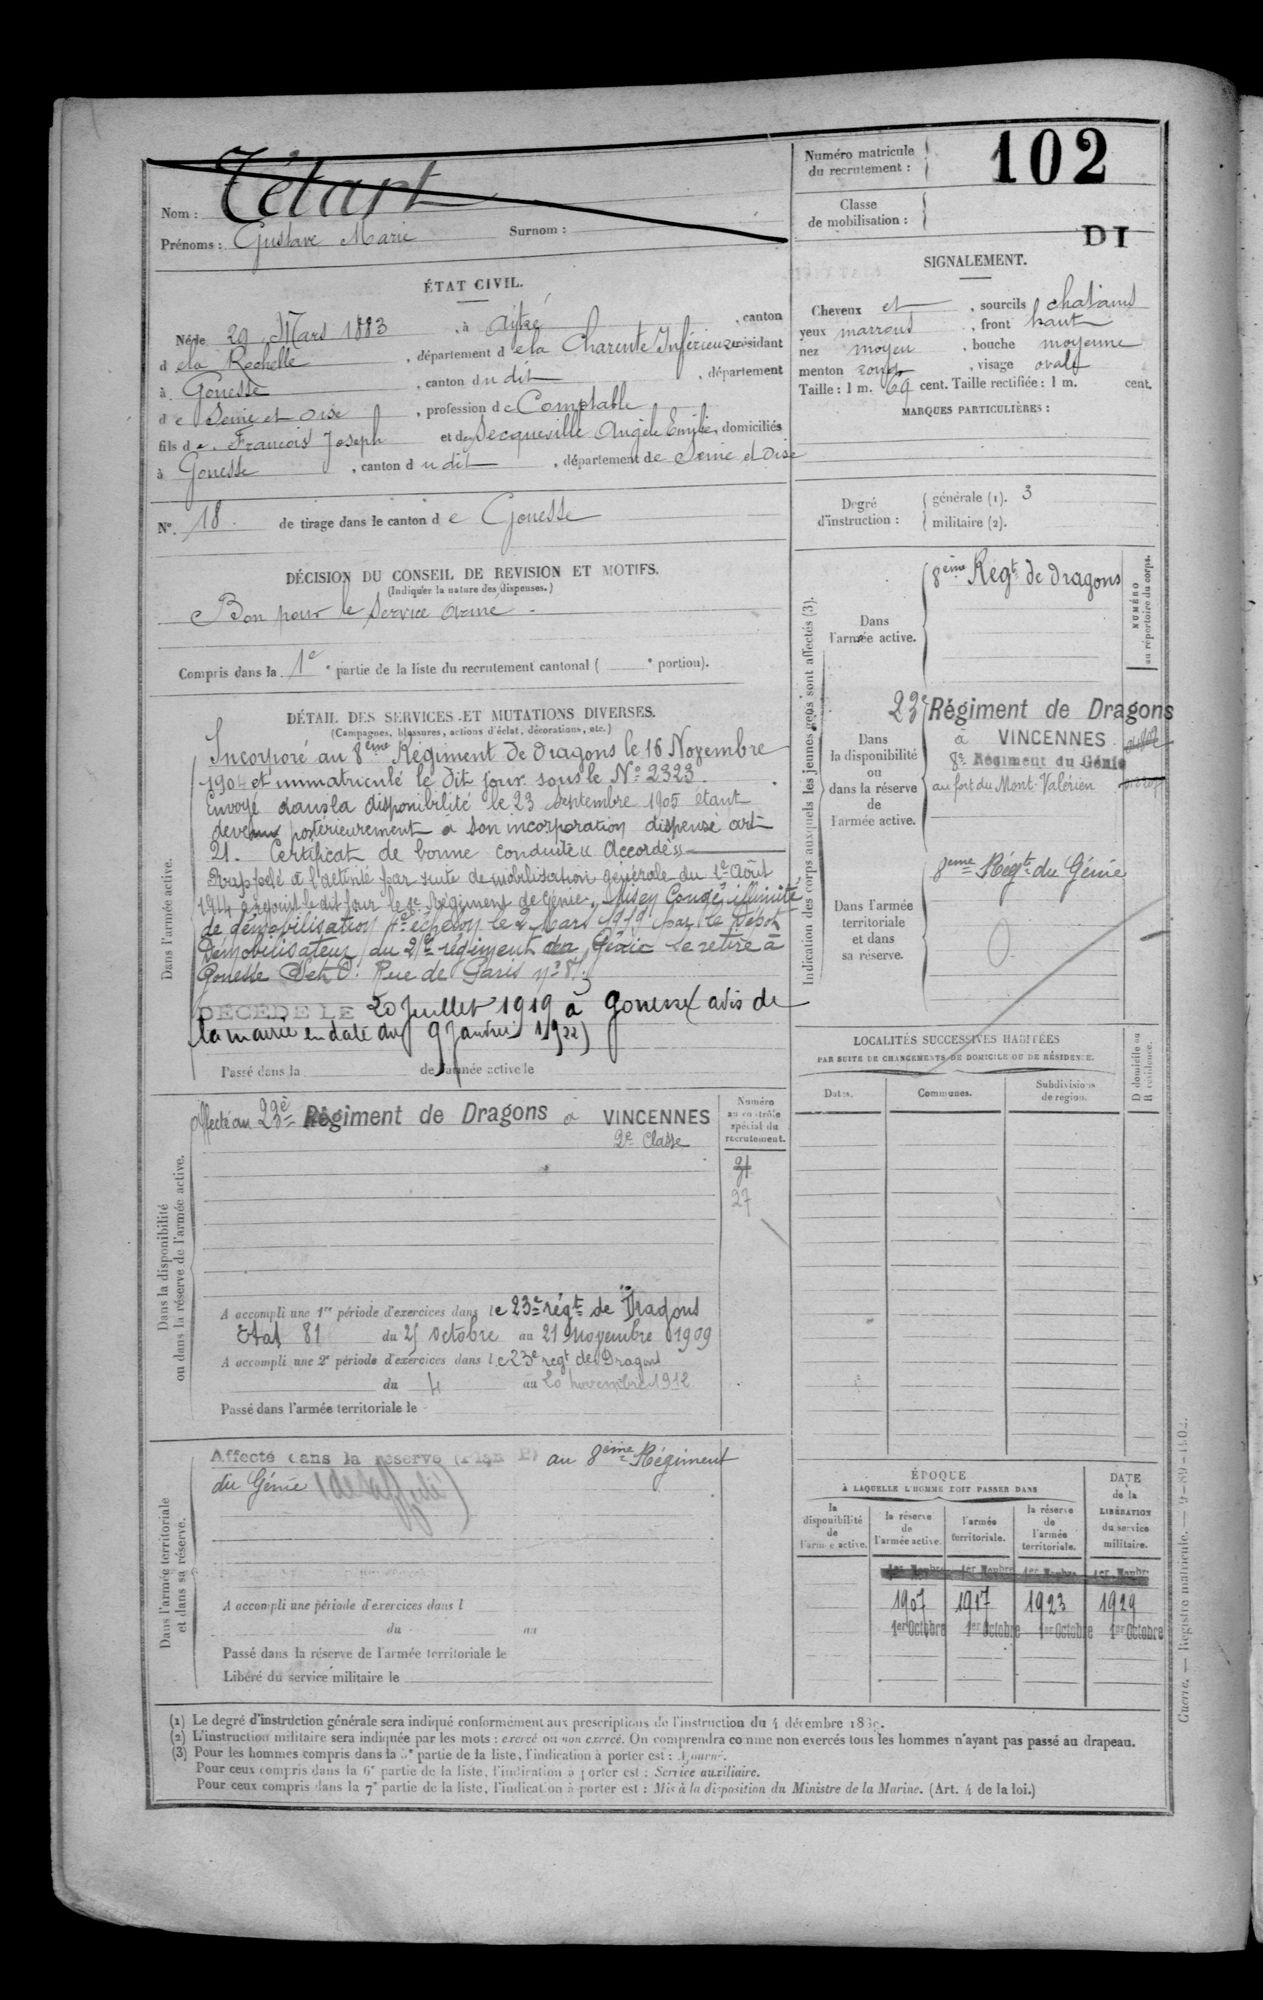 Nom : Tétart
Prénoms : Gustave Marie Surnom :
Numéro matricule du recrutement : 102
Classe de mobilisation :
DI
ÉTAT CIVIL.
Né le 29 Mars 1883, à Aytré, canton
d e la Rochelle, département d e la Charente Inférieure résidant
à Gonesse, canton d u dit, département
d e Seine et Oise, profession d e Comptable
fils d e François Joseph et de Secqueville Angèle Emilie, domiciliés
à Gonesse, canton d u dit, département de Seine et Oise
SIGNALEMENT.
Cheveux et, sourcils chatains
yeux marrons, front haut
nez moyen, bouche moyenne
menton rond, visage ovale
Taille : 1 m. 69 cent. Taille rectifiée : 1 m. cent.
MARQUES PARTICULIÈRES :
N° 18 de tirage dans le canton d e Gonesse
Degré d'instruction :
générale (1). 3
militaire (2).
DÉCISION DU CONSEIL DE REVISION ET MOTIFS.
(Indiquer la nature des dispenses.)
Bon pour le Service armé
Compris dans la 1e partie de la liste du recrutement cantonal ( e portion).
DÉTAIL DES SERVICES ET MUTATIONS DIVERSES.
(Campagnes, blessures, actions d'éclat, décorations, etc.)
Dans l'armée active.
Incorporé au 8ème Régiment de dragons le 16 Novembre
1904 et immatriculé le dit jour sous le N° 2323.
Envoyé dans la disponibilité le 23 septembre 1905 étant
devenu postérieurement à son incorporation dispensé art
21. Certificat de bonne conduite « Accordé »
Rappelé à l'activité par suite de mobilisation générale du 1er Août
1914 a rejoint le dit jour le 8e Régiment de Génie, Mis en Congé illimité
de démobilisation 4e échelon le 2 Mars 1919 par le Dépôt
Démobilisateur du 21e régiment du Génie se retire à
Gonesse Set O. Rue de Paris n° 87.
DÉCÉDÉ LE 20 Juillet 1919 à Gonesse (avis de
la mairie en date du 9 Janvier 1922)
Passé dans la de l'armée active le
Indication des corps auxquels les jeunes gens sont affectés (3).
NUMÉRO au répertoire du corps.
Dans l'armée active.
8ème Régt de dragons
Dans la disponibilité ou dans la réserve de l'armée active.
23e Régiment de Dragons
à VINCENNES
8e Régiment du Génie
au fort du Mont-Valérien
Dans l'armée territoriale et dans sa réserve.
8eme Régt du Génie
LOCALITÉS SUCCESSIVES HABITÉES
PAR SUITE DE CHANGEMENTS DE DOMICILE OU DE RÉSIDENCE.
Dates. Communes. Subdivisions de région. D domicile ou R résidence.
Dans la disponibilité ou dans la réserve de l'armée active.
Affecté au 23e Régiment de Dragons à VINCENNES
2e Classe
Numéro au contrôle spécial du recrutement.
27
A accompli une 1re période d'exercices dans le 23e régt de Dragons
Etat 81 du 25 octobre au 21 Novembre 1909
A accompli une 2e période d'exercices dans le 23e regt de Dragons
du 4 au 20 novembre 1912
Passé dans l'armée territoriale le
Dans l'armée territoriale et dans sa réserve.
Affecté dans la réserve (Plan ) au 8ème Régiment
du Génie
A accompli une période d'exercices dans l
du au
Passé dans la réserve de l'armée territoriale le
Libéré du service militaire le
ÉPOQUE
À LAQUELLE L'HOMME DOIT PASSER DANS
DATE de la LIBÉRATION du service militaire.
la disponibilité de l'armée active. la réserve de l'armée active. l'armée territoriale. la réserve de l'armée territoriale.
1er Novbre 1er Novbre 1er Novbre 1er Novbre
1907 1917 1923 1929
1er Octobre 1er Octobre 1er Octobre 1er Octobre
(1) Le degré d'instruction générale sera indiqué conformément aux prescriptions de l'instruction du 4 décembre
(2) L'instruction militaire sera indiquée par les mots : exercé ou non exercé. On comprendra comme non exercés tous les hommes n'ayant pas passé au drapeau.
(3) Pour les hommes compris dans la 5e partie de la liste, l'indication à porter est : Ajourné.
Pour ceux compris dans la 6e partie de la liste, l'indication à porter est : Service auxiliaire.
Pour ceux compris dans la 7e partie de la liste, l'indication à porter est : Mis à la disposition du Ministre de la Marine. (Art. 4 de la loi.)
Guerre. — Registre matricule. — 9-89-1902.